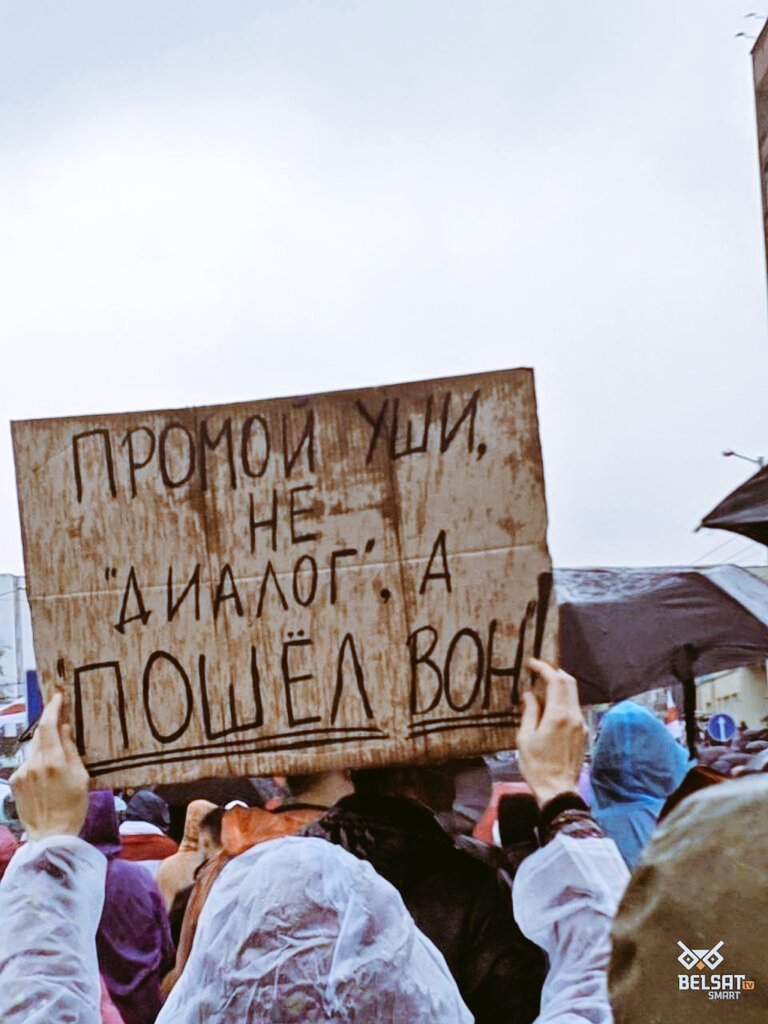 ПРОМОЙ УШИ,
НЕ
"ДИАЛОГ", А
"ПОШЁЛ ВОН"!
BELSAT TV
SMART